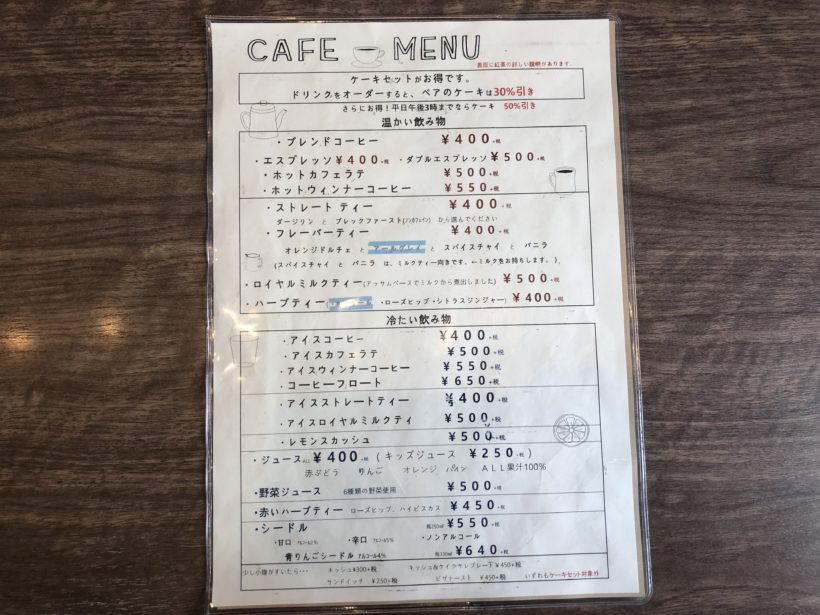 CAFE MENU
裏面に紅茶の詳しい説明があります。
ケーキセットがお得です。
ドリンクをオーダーすると、ペアのケーキは30%引き
さらにお得！平日午後3時までならケーキ 50%引き
温かい飲み物
・ブレンドコーヒー ￥400+税
・エスプレッソ￥400+税 ・ダブルエスプレッソ￥500+税
・ホットカフェラテ ￥500+税
・ホットウィンナーコーヒー ￥550+税
・ストレート ティー ￥400+税
ダージリン と ブレックファースト(ノンカフェイン) から選んでください
・フレーバーティー ￥400+税
オレンジドルチェ と スパイスチャイ と バニラ
(スパイスチャイ と バニラ は、ミルクティー向きです、←ミルクをお持ちします。)
・ロイヤルミルクティ(アッサムベースでミルクから煮出しました) ￥500+税
・ハーブティー( ・ローズヒップ・シトラスジンジャー) ￥400+税
冷たい飲み物
・アイスコーヒー ￥400+税
・アイスカフェラテ ￥500+税
・アイスウィンナーコーヒー ￥550+税
・コーヒーフロート ￥650+税
・アイスストレートティー ￥400+税
・アイスロイヤルミルクティ ￥500+税
・レモンスカッシュ ￥500+税
・ジュースALL ￥400+税 (キッズジュース ￥250+税)
赤ぶどう りんご オレンジ パイン ALL果汁100%
・野菜ジュース 6種類の野菜使用 ￥500+税
・赤いハーブティー ローズヒップ、ハイビスカス ￥450+税
・シードル 瓶250ml ￥550+税
・甘口 ｱﾙｺｰﾙ2% ・辛口 ｱﾙｺｰﾙ5% ・ノンアルコール
青りんごシードル ｱﾙｺｰﾙ4% 瓶330ml ￥640+税
少し小腹がすいたら・・・ キッシュ¥300+税 キッシュ&ケイクサレプレート¥450+税
サンドイッチ ¥250+税 ピザトースト ¥450+税 いずれもケーキセット対象外